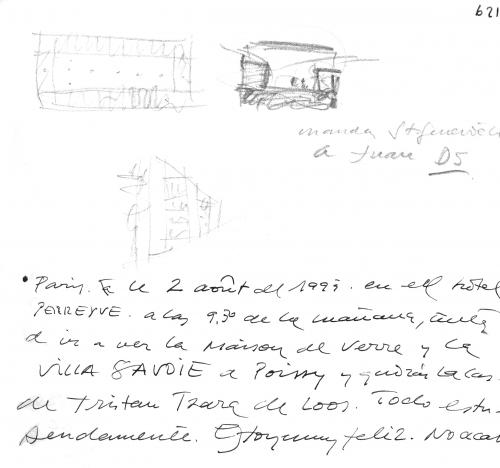 621
manda Ste Geneviève
a Juan DS
• Paris. le 2 août del 1993. en el hôtel
PERREYVE. a las 9,30 de la mañana, antes
d ir a ver la Maison de Verre y la
VILLA SAVOIE a Poissy y quizás la cas
de Tristan Tzara de Loos. Todo estu-
pendamente. Estoy muy feliz. No acab